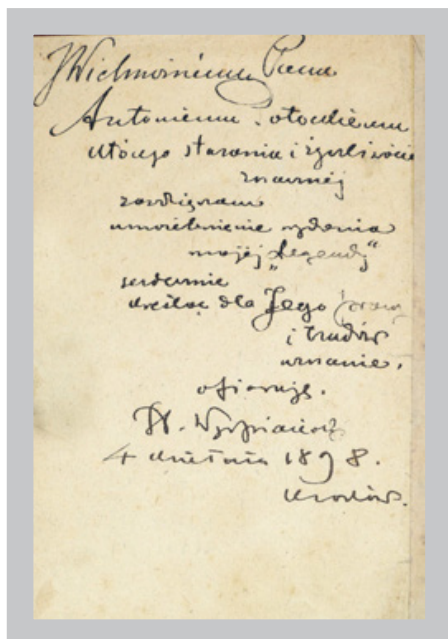 JWielmożnemu Panu
Antoniemu Potockiemu
którego starania i życzliwości
zawdzięczam
umożebnienie wydania
mojéj „Legendy”
serdecznie
kreśląc dla Jego pracy
i trudów
uznanie.
ofiaruję.
St. Wyspiański
4 kwietnia 1898.
Kraków.